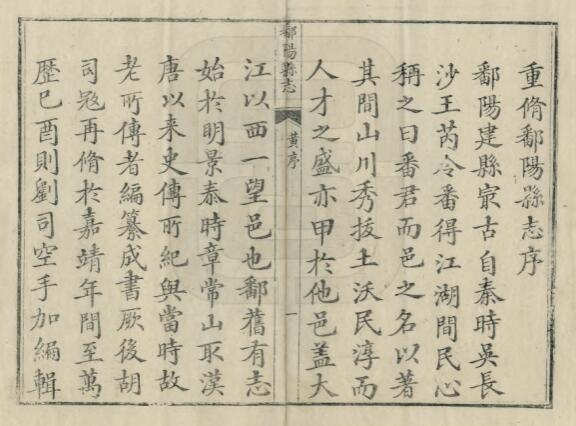 重脩鄱陽縣志序
鄱陽建縣㝡古自秦時吳長
沙王芮令番得江湖間民心
稱之曰番君而邑之名以著
其間山川秀拔土沃民淳而
人才之盛亦甲於他邑盖大
鄱陽縣志
黃序
一
江以西一望邑也鄱舊有志
始於明景泰時章常山取漢
唐以来史傳所紀與當時故
老所傳者編纂成書厥後胡
司冦再脩於嘉靖年間至萬
歷己酉則劉司空手加編輯